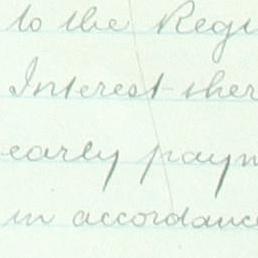 to the Regi
Interest ther
early paym
in accordance